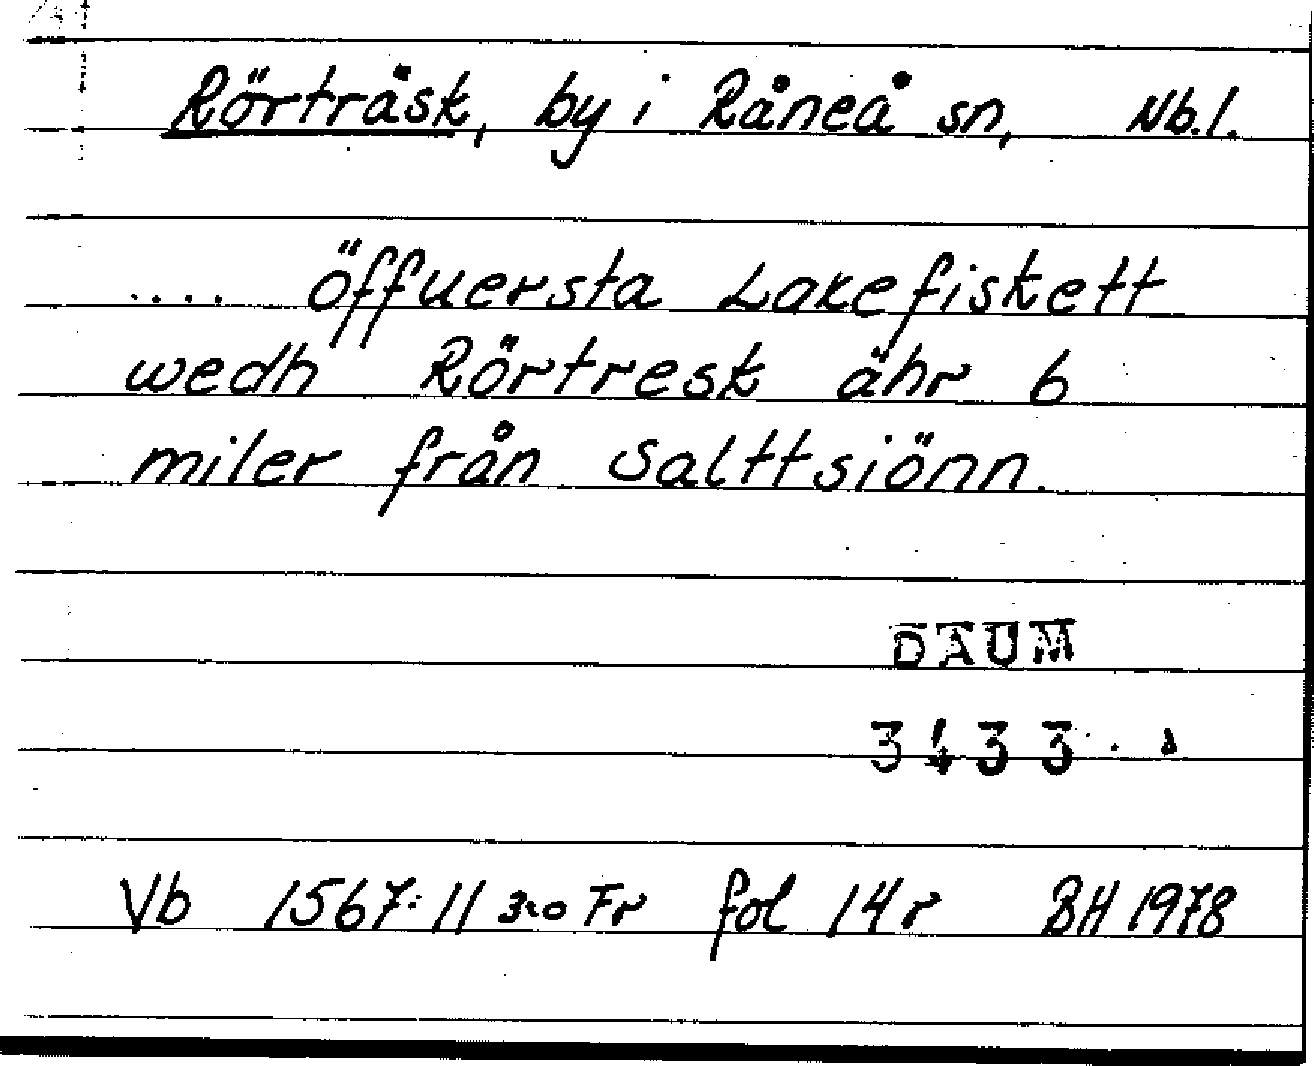 Rörträsk, by i Råneå sn, Nb.l.
.... öffuersta Lakefiskett
wedh Rörtresk ähr 6
miler från Salttsiönn.
DAUM
3433
Vb 1567:11 Fr fol 14r BH 1978